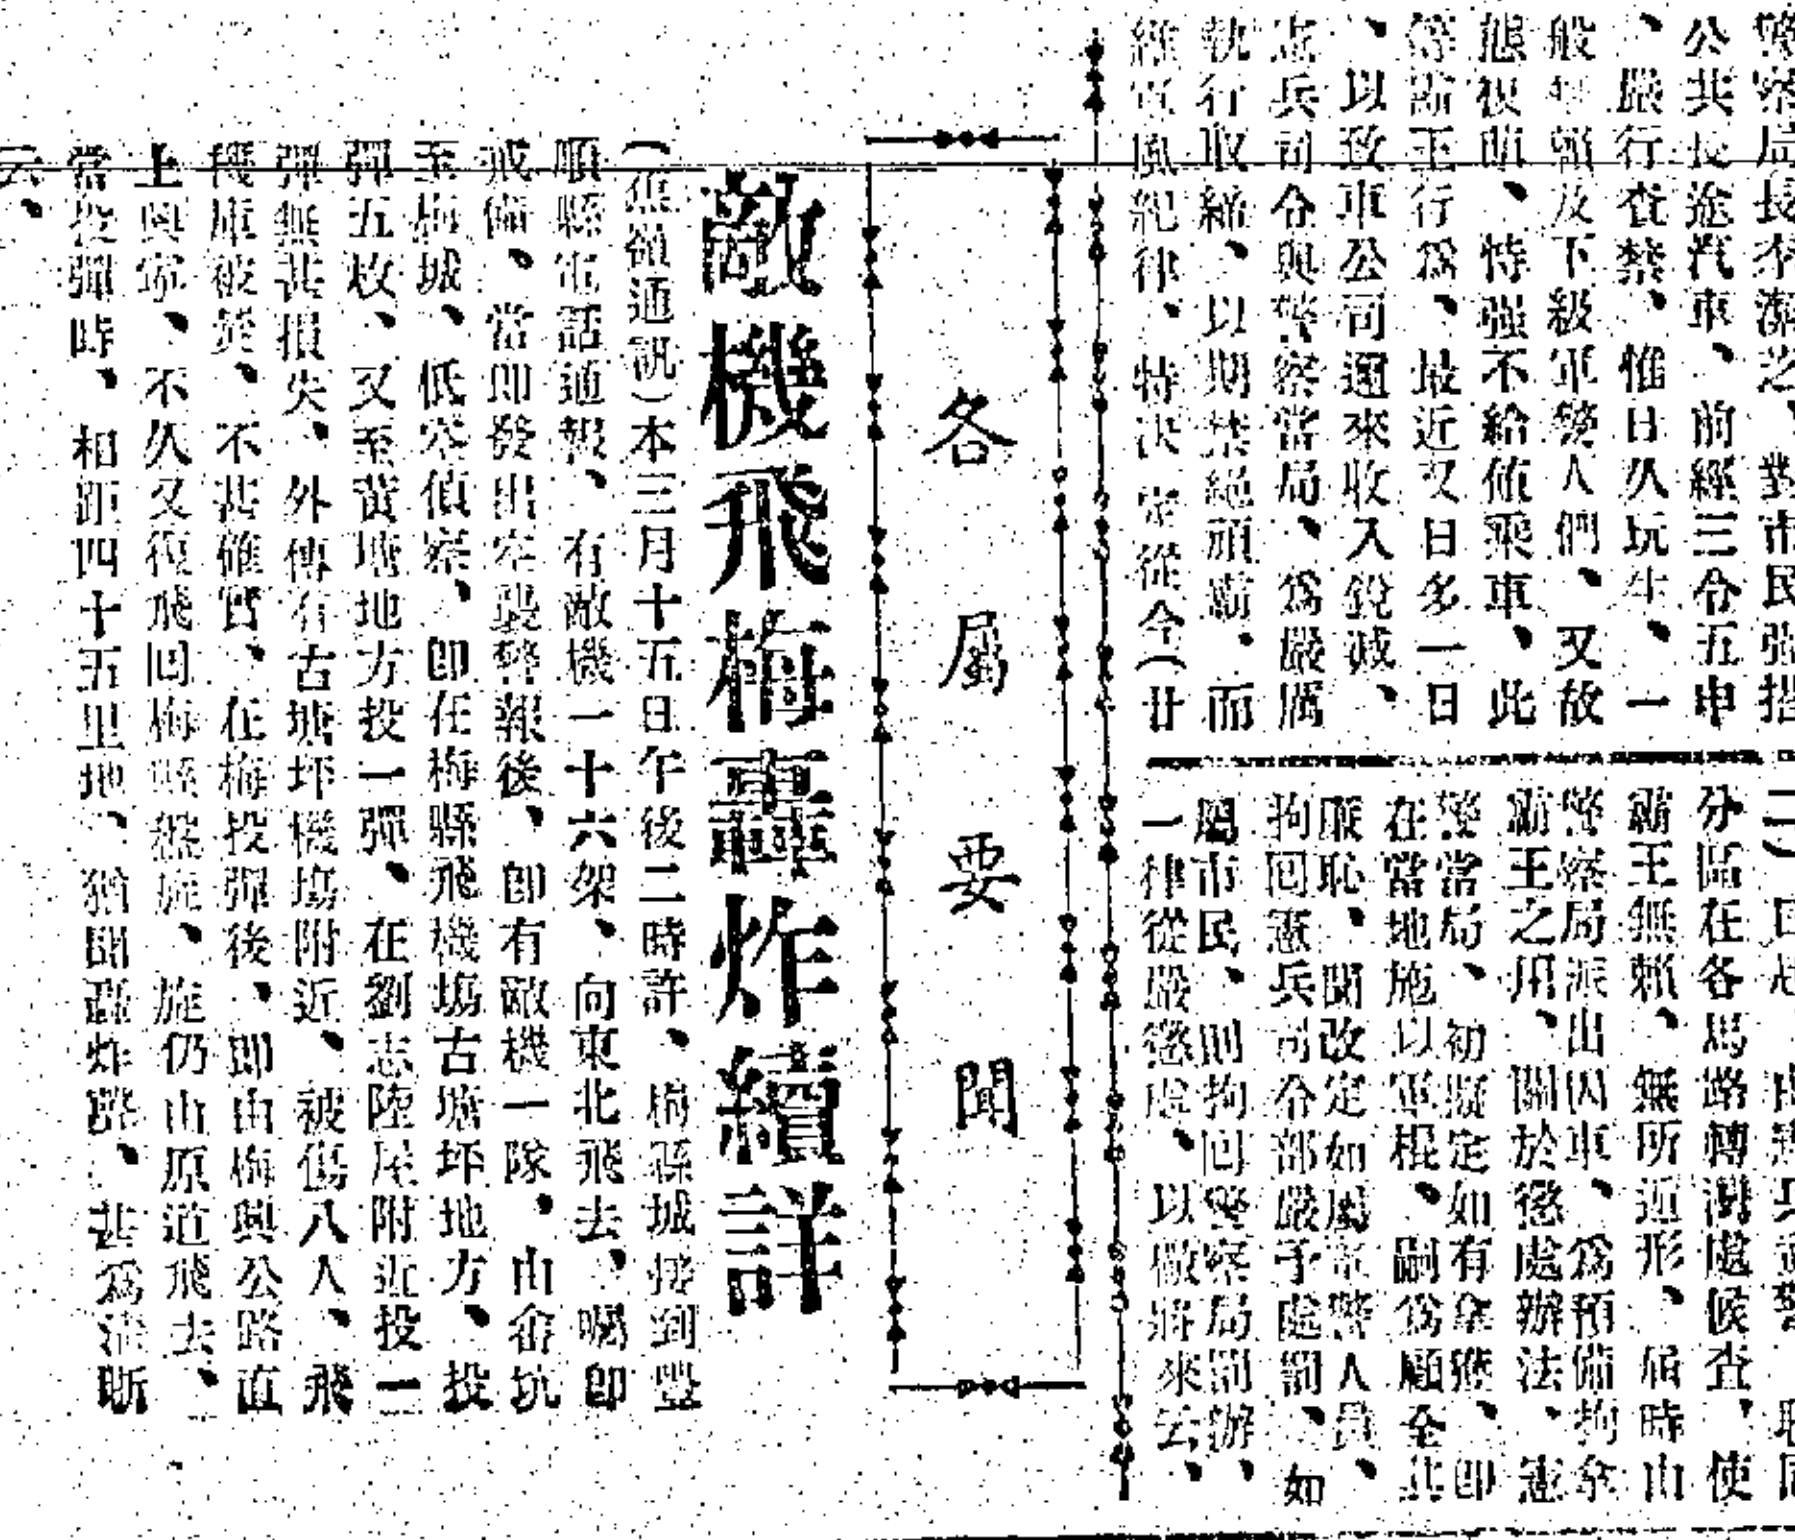 警察局長李潔之、對市民強搭
公共長途汽車、前經三令五申
、嚴行查禁、惟日久玩生、一
般無賴及下級軍警人們、又故
態復萌、恃强不給值乘車、此
等霸王行爲、最近又日多一日
、以致車公司邇來收入銳減、
憲兵司令與警察當局、爲嚴厲
執行取締、以期禁絕頑霸、而
維軍風紀律、特决定從今(廿
二)日起、由憲兵
分區在各馬路轉灣處候查、使
霸王無賴、無所遁形、屆時由
警察局派出囚車、爲預備拘拿
霸王之用、關於懲處辦法、憲
警當局、初擬定如有拿獲、即
在當地施以軍棍、嗣爲顧全其
廉恥、聞改定如屬軍警人員、
拘回憲兵司令部嚴予處罰、如
屬市民、則拘回警察局罰辦、
一律從嚴懲處、以儆將來云、
各屬要聞
敵機飛梅轟炸續詳
(蕉嶺通訊)本三月十五日午後二時許、梅縣城接到豐
順縣電話通報、有敵機一十六架、向東北飛去、囑即
戒備、當即發出空襲警報後、卽有敵機一隊、由畲坑
至梅城、低空偵察、卽在梅縣飛機塲古塘坪地方、投
彈五枚、又至黃塘地方投一彈、在劉志陸屋附近投一
彈無甚損失、外傳有古塘坪機塲附近、被傷八人、飛
機庫被焚、不甚確實、在梅投彈後、即由梅興公路直
上興寧、不久又復飛回梅縣盤旋、旋仍由原道飛去、
當投彈時、相距四十五里地、猶聞轟炸聲、甚爲清晰
云、